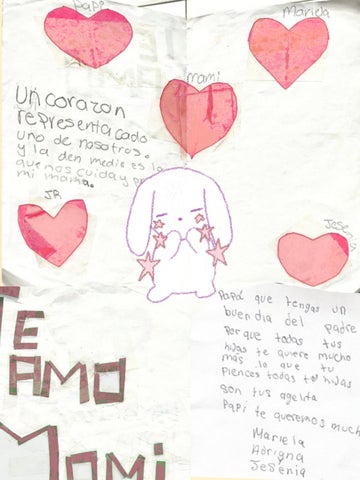 Papi
Mariela
Mami
Un corazon
representa cado
uno de nosotros.
y la den medio es la
que nos cuida y
mi mama.
JR
Jesenia
TE
AMO
Mami
Papá que tengas un
buen dia del padre
Porque todas tus
hijas te quiere mucho
mas lo que tu
Piences todas tu hijas
son tus
Papi te queremos much
Mariela
Adrigna
Jesenia